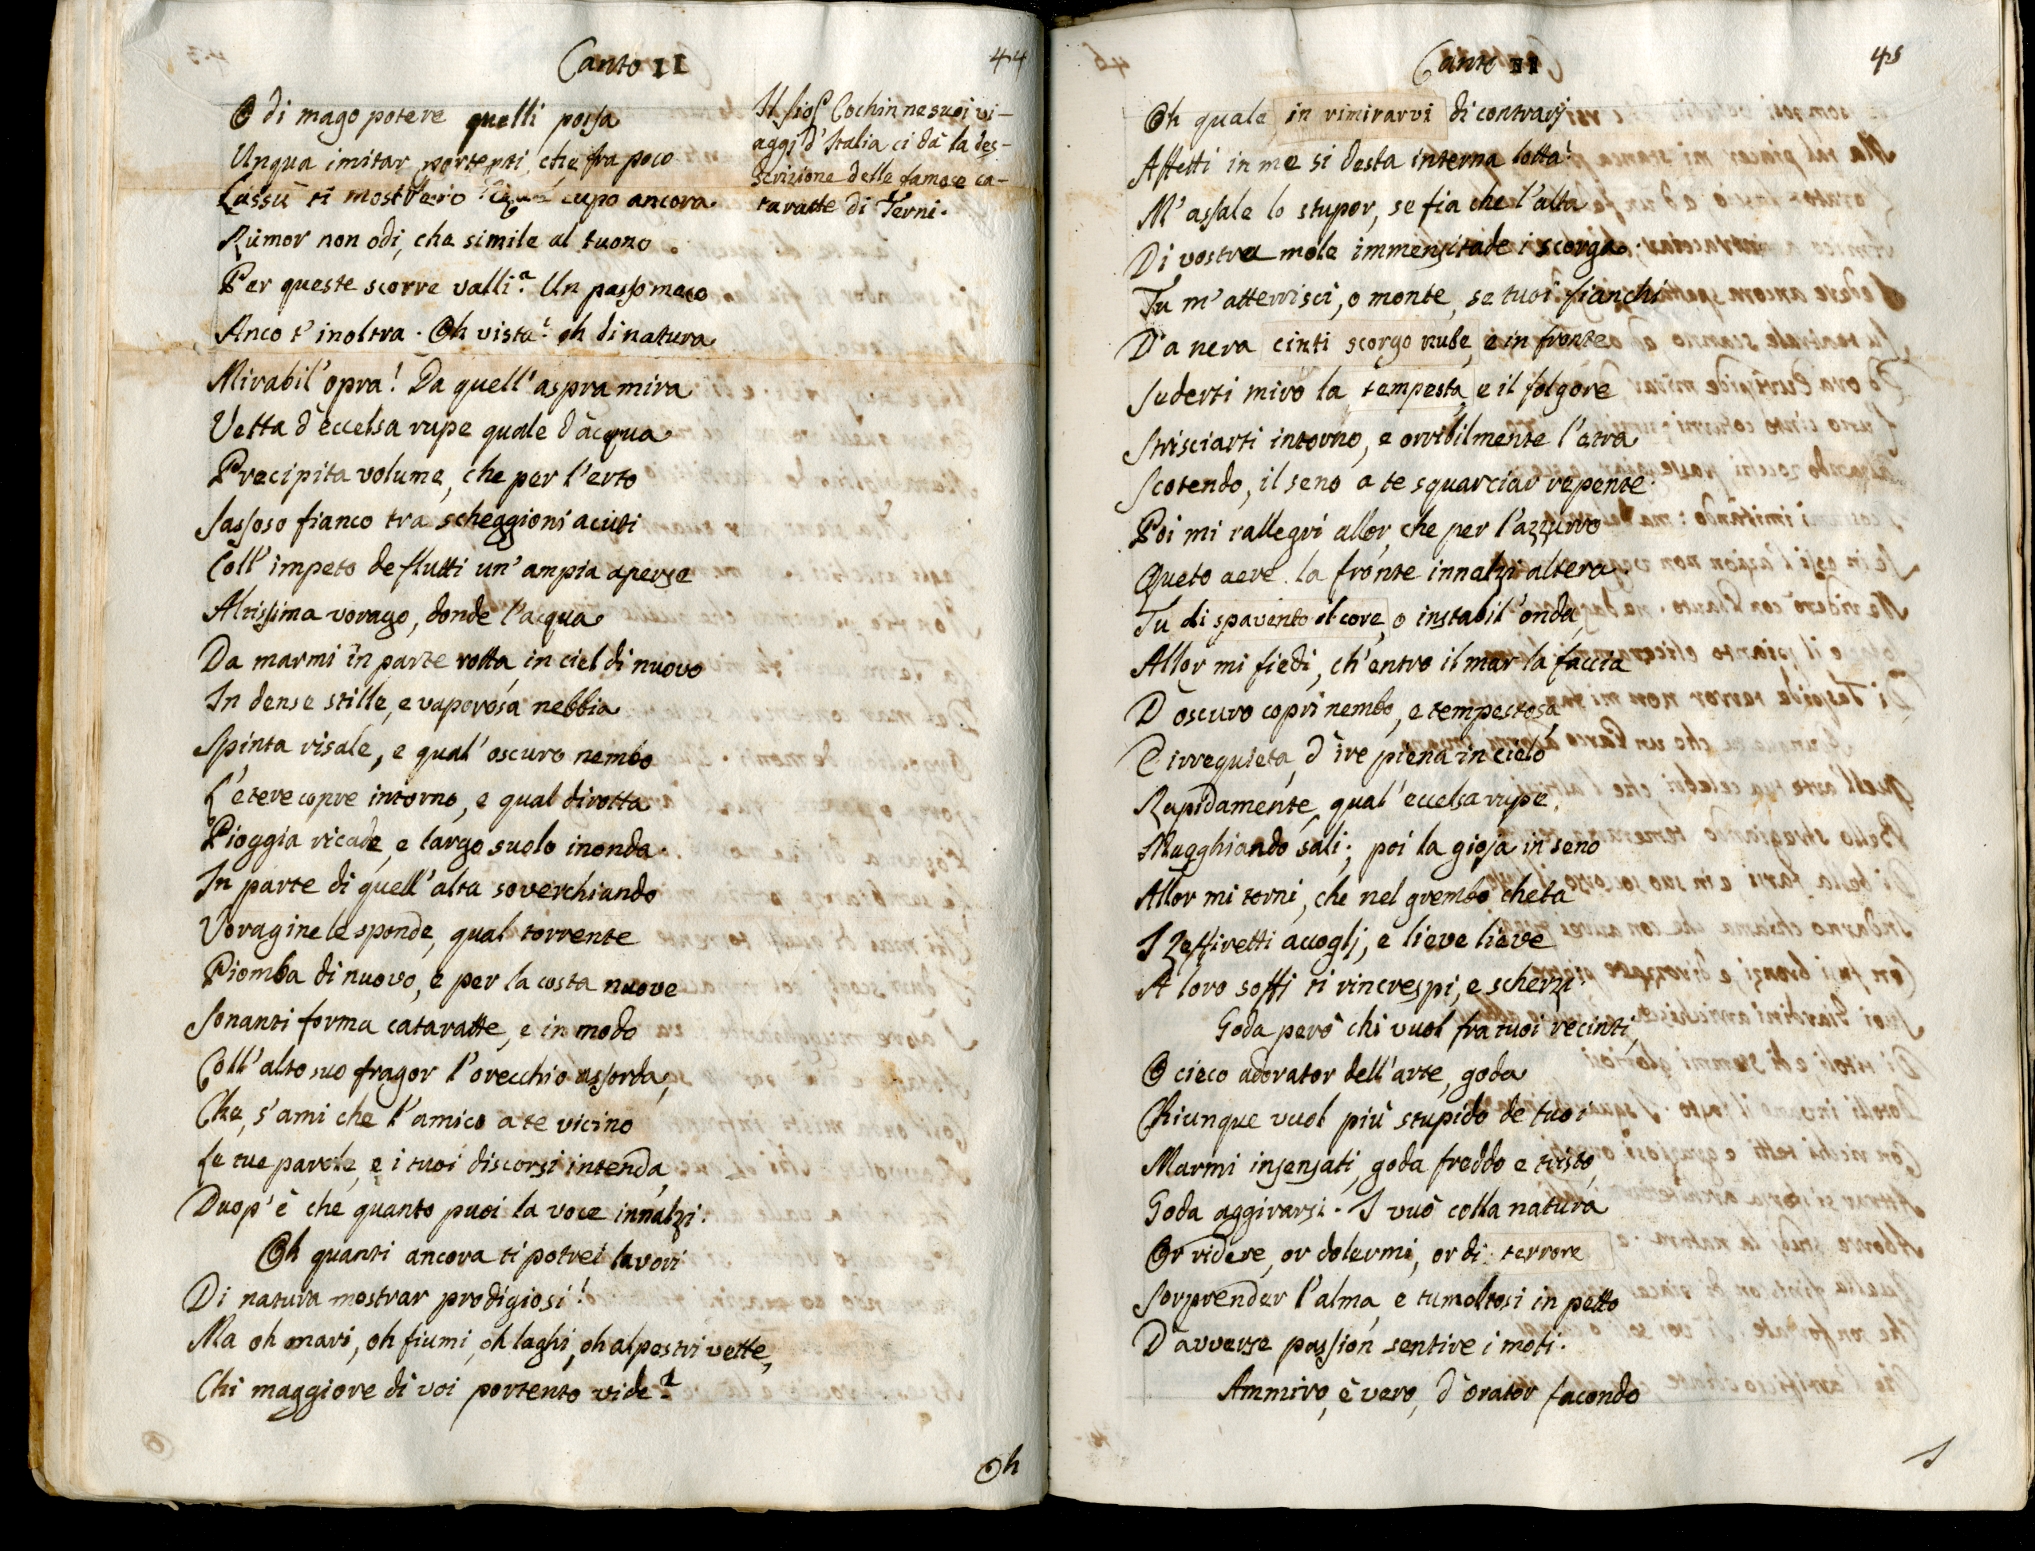 Canto II
44
O di mago potere quelli possa
Unqua imitar portenti, che fra poco
Lassù ti mostrerò cupo ancora
Rumor non odi, che simile al tuono
Per queste scorre valli? Un passo meco
Anco t'inoltra. Oh vista! oh di natura
Mirabil'opra! Da quell'aspra mira
Vetta d'eccelsa rupe quale d'acqua
Precipita volume, che per l'erto
Sassoso fianco tra scheggioni acuti
Coll'impeto de flutti un'ampia aperse
Altissima vorago, donde l'acqua
Da marmi in parte rotta, in ciel di nuovo
In dense stille, e vaporosa nebbia
Spinta risale, e qual'oscuro nembo
L'etere copre intorno, e qual dirotta
Pioggia ricade, e largo suolo inonda.
In parte di quell'alta soverchiando
Voragine le sponde, qual torrente
Piomba di nuovo, e per la costa nuove
Sonanti forma cataratte, e in modo
Coll'alto suo fragor l'orecchio assorda,
Che, s'ami che l'amico a te vicino
Le tue parole, e i tuoi discorsi intenda,
Duop'è che quanto puoi la voce innalzi.
Oh quanti ancora ti potrei lavori
Di natura mostrar prodigiosi!
Ma oh mari, oh fiumi, oh laghi, oh alpestri vette,
Chi maggiore di voi portento vide?
Il Sig. Cochin ne suoi vi-
aggj d'Italia ci dà la des-
scrizione delle famose ca-
taratte di Terni.
Oh
Canto II
45
Oh quale in rimirarvi di contrarj
Affetti in me si desta interna lotta!
M'assale lo stupor, se fia che l'alta
Di vostra mole immensitade i scorga.
Tu m'atterrisci, o monte, se tuoi fianchi
Da nera cinti scorgo nube, e in fronte
Sederti miro la tempesta, e il folgore
Strisciarti intorno, e orribilmente l'atra
Scotendo, il seno a te squarciar repente.
Poi mi rallegri allor, che per l'azzurro
Queto aere la fronte innalzi altera.
Tu di spavento il core, o instabil'onda,
Allor mi fiedi, ch'entro il mar la faccia
D'oscuro copri nembo, e tempestosa
E irrequieta, d'ire piena in cielo
Rapidamente, qual'eccelsa rupe,
Mugghiando sali; poi la gioja in seno
Allor mi torni, che nel grembo cheta
I Zeffiretti accoglj, e lieve lieve
A loro soffi ti rincrespi, e scherzi.
Goda però chi vuol fra tuoi recinti,
O cieco adorator dell'arte, goda
Chiunque vuol più stupido de tuoi
Marmi insensati, goda freddo e tristo,
Goda aggirarsi. I vuò colla natura
Or ridere, or dolermi, or di terrore
Sorprender l'alma, e tumoltosi in petto
D'avverse passion sentire i moti.
Ammiro, è vero, d'orator facondo